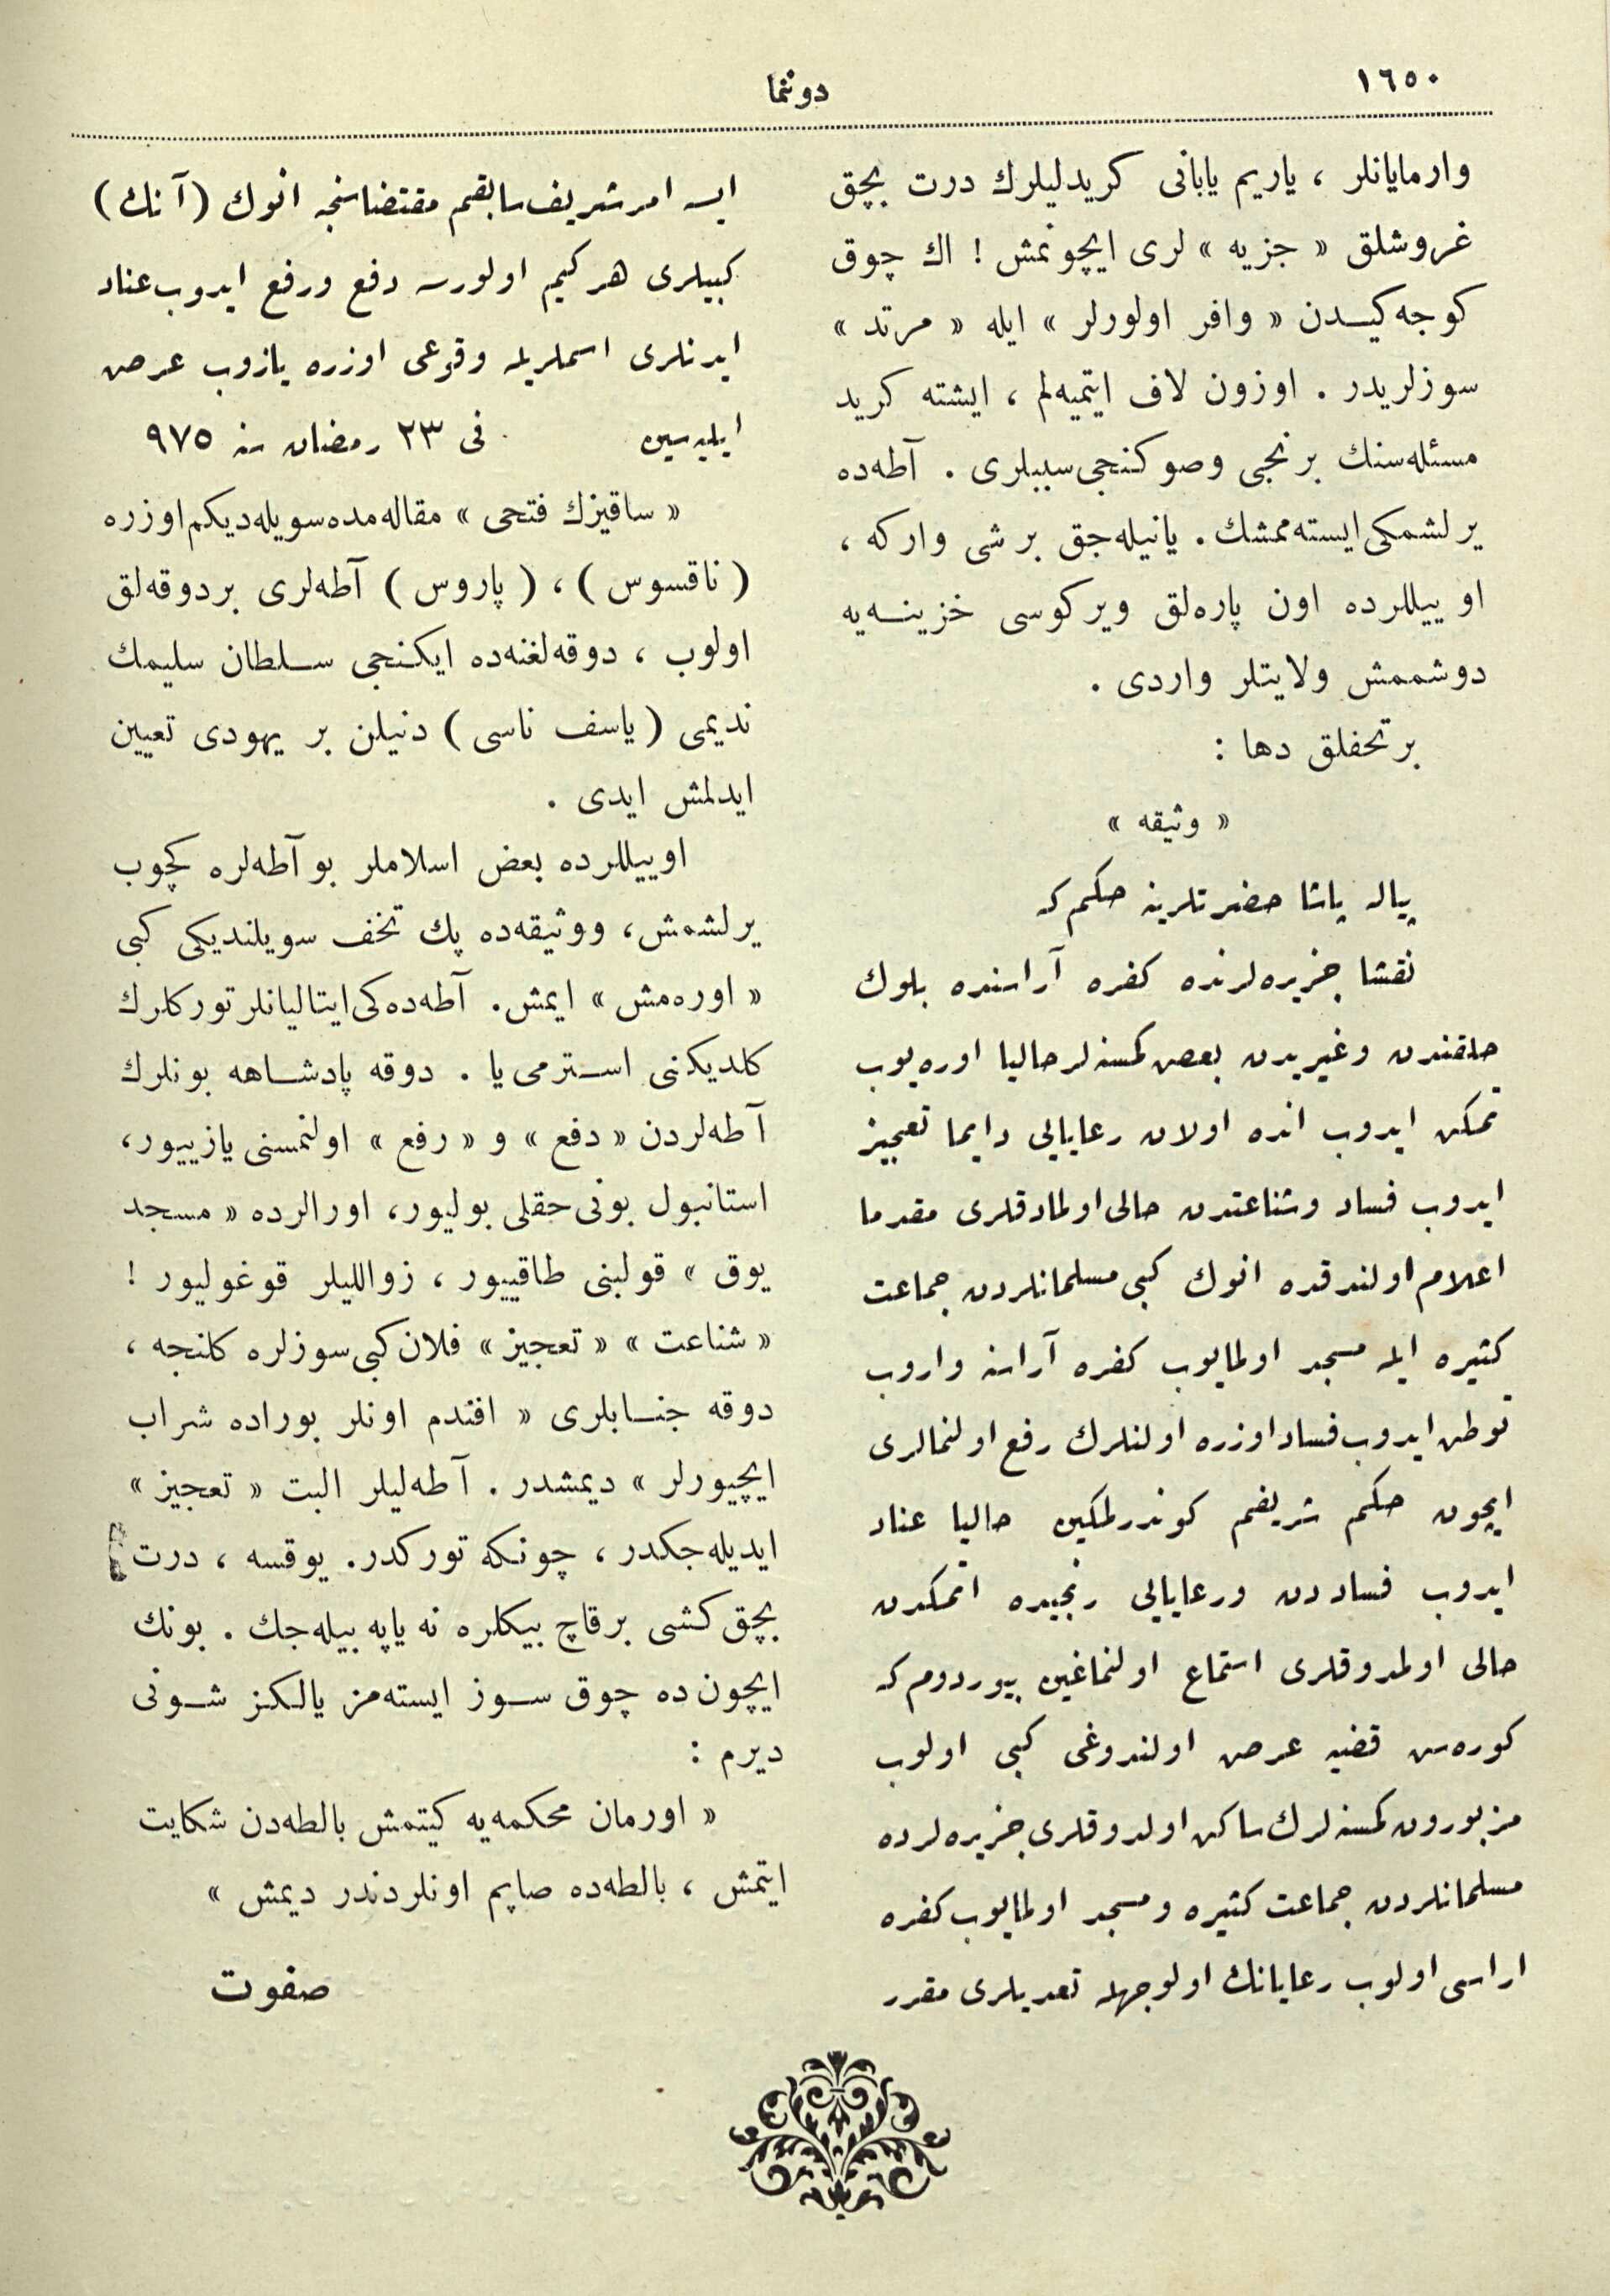 ١٦٥٠
دوننما
وارمايانلر ، ياريم يابانى كريدليلرك درت بچق
غروشلق « جزيه » لرى ايچونمش ! اك چوق
كوجه كيدن « وافر اولورلر » ايله « مرتد »
سوزلريدر . اوزون لاف ايتميه‌لم ، ايشته كريد
مسئله‌سنك برنجى وصوكنجى سببلرى . آطه‌ده
يرلشمكى ايسته‌مه‌مشك . يانيله‌جق برشى واركه ،
او ييللرده اون پاره‌لق ويركوسى خزينه‌يه
دوشممش ولايتلر واردى .
بر تحفلق دها :
« وثيقه »
پياله پاشا حضرتلرينه حكم كه
نقشا جزيره‌لرنده كفره آراسنده بلوك
خلقندن وغيريدن بعض كمسنه‌لر حاليا اوره‌يوب
تمكن ايدوب انده اولان رعايايى دايما تعجيز
ايدوب فساد وشناعتدن خالى اولمادقلرى مقدما
اعلام اولندقده انوك كبى مسلمانلردن جماعت
كثيره ايله مسجد اولمايوب كفره آراسنه واروب
توطن ايدوب فساد اوزره اولنلرك رفع اولنمالرى
ايچون حكم شريفم كوندرلمكين حاليا عناد
ايدوب فساددن ورعايايى رنجيده اتمكدن
خالى اولمدوقلرى استماع اولنماغين بيوردومكه
كوره‌سن قضيه عرض اولندوغى كبى اولوب
مزبورون كمسنه‌لرك ساكن اولدوقلرى جزيره‌لرده
مسلمانلردن جماعت كثيره و مسجد اولمايوب كفره
اراسى اولوب رعايانك اولوجهله تعديلرى مقرر
ايسه امر شريف سابقم مقتضاسنجه انوك (آنك)
كبيلرى هر كيم اولورسه دفع ورفع ايدوب عناد
ايدنلرى اسملريله وقوعى اوزره يازوب عرض
ايليه‌سين فى ٢٣ رمضان سنه ٩٧٥
« ساقيزك فتحى » مقاله‌مده سويله‌ديكم اوزره
( ناقسوس ) ، ( پاروس ) آطه‌لرى بر دوقه‌لق
اولوب ، دوقه‌لغنه‌ده ايكنجى سلطان سليمك
نديمى ( ياسف ناسى ) دنيلن بر يهودى تعيين
ايدلمش ايدى .
اوييللرده بعض اسلاملر بو آطه‌لره كچوب
يرلشمش، ووثيقه‌ده پك تحف سويلنديكى كبى
« اوره‌مش » ايمش. آطه‌ده‌كى ايتاليانلر توركلرك
كلديكنى استرمى يا . دوقه پادشاهه بونلرك
آطه‌لردن « دفع » و « رفع » اولنمسنى يازييور،
استانبول بونى حقلى بوليور، اورالرده « مسجد
يوق » قولبنى طاقييور ، زوالليلر قوغوليور !
« شناعت » « تعجيز » فلان كبى سوزلره كلنجه ،
دوقه جنابلرى « افندم اونلر بوراده شراب
ايچيورلر » ديمشدر . آطه‌ليلر البت « تعجيز »
ايديله‌جكدر ، چونكه توركدر. يوقسه ، درت
بچق كشى برقاچ بيكلره نه ياپه بيله‌جك . بونك
ايچون ده چوق سوز ايسته‌مز يالكز شونى
ديرم :
« اورمان محكمه‌يه كيتمش بالطه‌دن شكايت
ايتمش ، بالطه‌ده صاپم اونلردندر ديمش »
صفوت